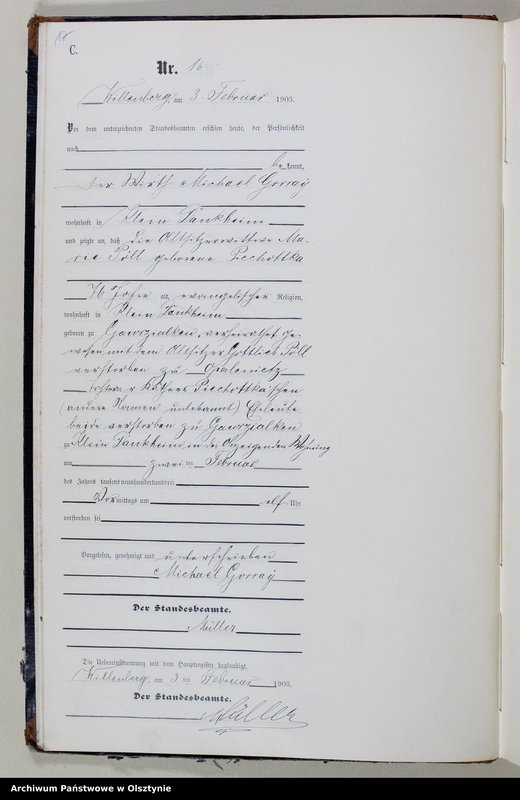 C.
Nr. 16
Willenberg, am 3 Februar 1903.
Vor dem unterzeichneten Standesbeamten erschien heute, der Persönlichkeit
nach
be kannt,
der Wirth Michael Gorray
wohnhaft in Klein Lankheim
und zeigte an, daß die Altsitzerwittwe Ma-
rie Döll geborene Piechottka
76 Jahre alt, evangelischer Religion,
wohnhaft in Klein Lankheim
geboren zu Gawrzialken, verheirathet ge-
wesen mit dem Altsitzer Gottlieb Döll
verstorben zu Opalenietz
Tochter der Käthner Piechottka'schen
(andere Namen unbekannt) Eheleute
beide verstorben zu Gawrzialken
zu Klein Lankheim in des Anzeigenden Wohnung
am zwei ten Februar
des Jahres tausend neunhundertunddrei
Vor mittags um elf Uhr
verstorben sei
Vorgelesen, genehmigt und unterschrieben
Michael Gorray
Der Standesbeamte.
Müller
Die Uebereinstimmung mit dem Hauptregister beglaubigt.
Willenberg, am 3 ten Februar 1903.
Der Standesbeamte.
Müller
Archiwum Państwowe w Olsztynie